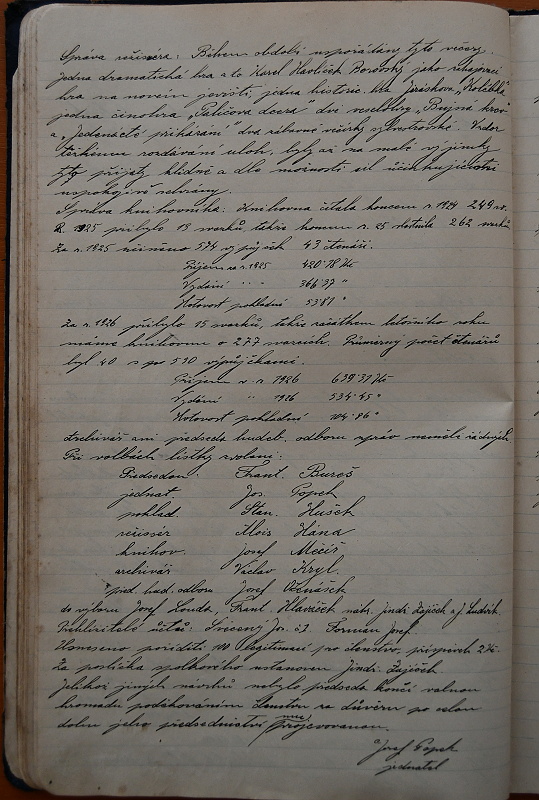 Správa režiséra: Během období uspořádány tyto večery:
jedna dramatická hra a to Karel Havlíček Borovský jako zahajovací
hra na novém jevišti, jedna histor. hra Jiráskova „Kolébka"
jedna činohra „Paličova dcera" dvě veselohry „Bujná krev"
a „Jedenácté přikázání" dva zábavné věčírky sylvestrovské. Vzdor
těžkému rozdávání uloh, byly až na malé vyjímky
tyto přijaty klidně a dle možnosti sil účinkujících
uspokojivě sehrány.
Správa knihovníka: Knihovna čítala koncem r. 1924 249 sv.
R. 1925 přibylo 13 svazků, takže koncem r. 25 662 svazků
Za r. 1925 574 výpůjček 43 čtenáři.
Příjem za r. 1925 420·78 Kč
Vydání " " 366·97 "
Hotovost pokladní 53·81 "
Za r. 1926 přibylo 15 svazků, takže začátkem letošního roku
máme knihovnu o 277 svazcích. Průměrný počet čtenářů
byl 40 s 530 výpůjčkami.
Příjem v r. 1926 639·31 Kč
Vydání " 1926 534·45 "
Hotovost pokladní 104·86 "
Archivář ani předseda hudeb. odboru zpráv neměli žádných.
Při volbách lístky zvoleni:
Předsedou: Frant. Bureš
jednat. Jos. Popek
poklad. Stan. Hušek
režisér Alois Hána
knihov. Josef
archivář Václav Kryl
před. hud. odboru Josef
do výboru Josef Louda, Frant. Hlaváček, náhr. Jindř. Zajíček a J. Ludvík.
účtů: Jos. Forman Josef.
Usneseno poříditi 100 legitimací pro členstvo, příspěvek 2 Kč.
Za poslíčka spolkového ustanoven Jindř. Zajíček.
Jelikož jiných návrhů nebylo předseda končí valnou
hromadu poděkováním členstvu za důvěru po celou
dobu jeho předsednictví mu projevovanou.
Josef Popek
jednatel